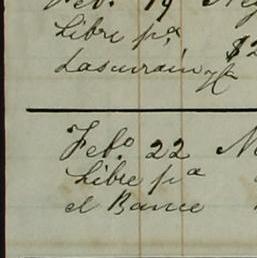 Feb. 19
Libre pa $2
Lascurain
Febo 22
Libre pa
el Banco